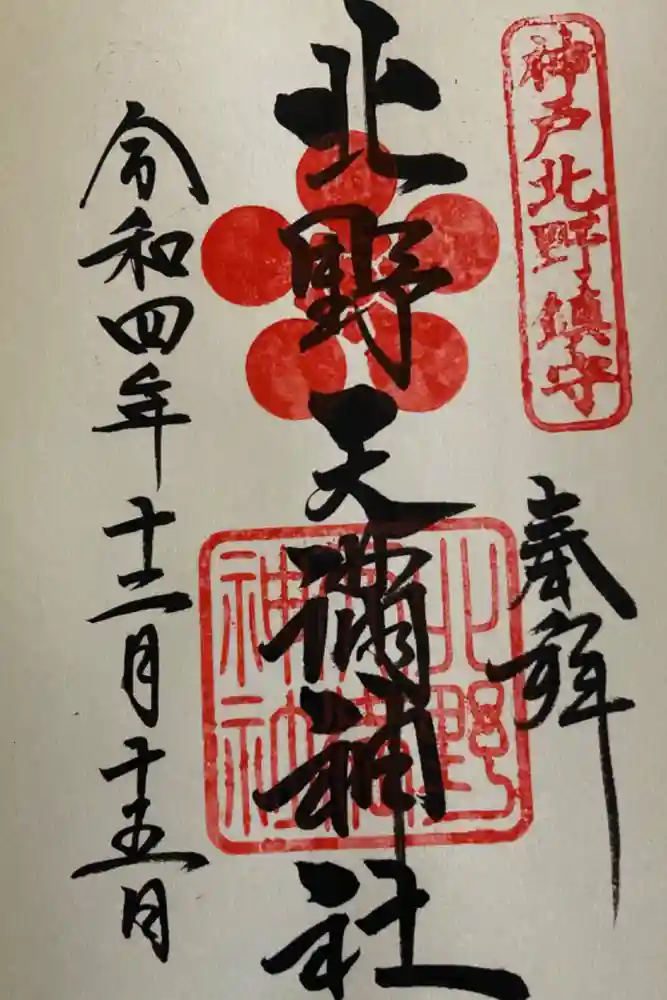 神戸北野鎮守
奉拝
北野天満神社
北野
天満
神社
令和四年十二月十五日